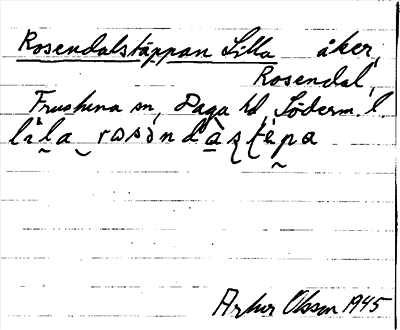 Rosendalstäppan Lilla åker,
Rosendal,
Frustuna sn, Daga hd, Söderm. l.
lìla rosəndàstɛ̀pa
Arthur Olsson 1945